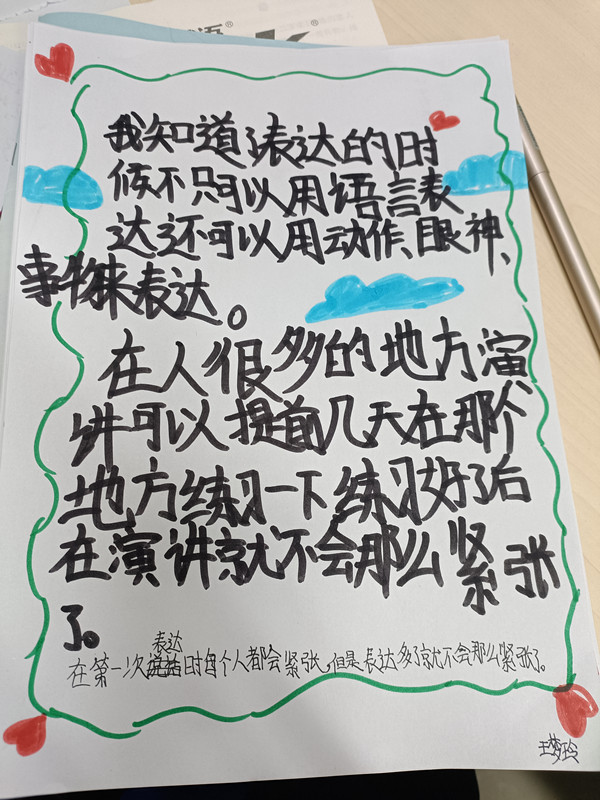 语®
®
我知道了表达的时
候不只可以用语言表
达还可以用动作、眼神、
事物来表达。
在人很多的地方演
讲可以提前几天在那个
地方练习一下练习好了后
在演讲就不会那么紧张
了。
表达
在第一次说话时每个人都会紧张,但是表达多了就不会那么紧张了。
王梦玲